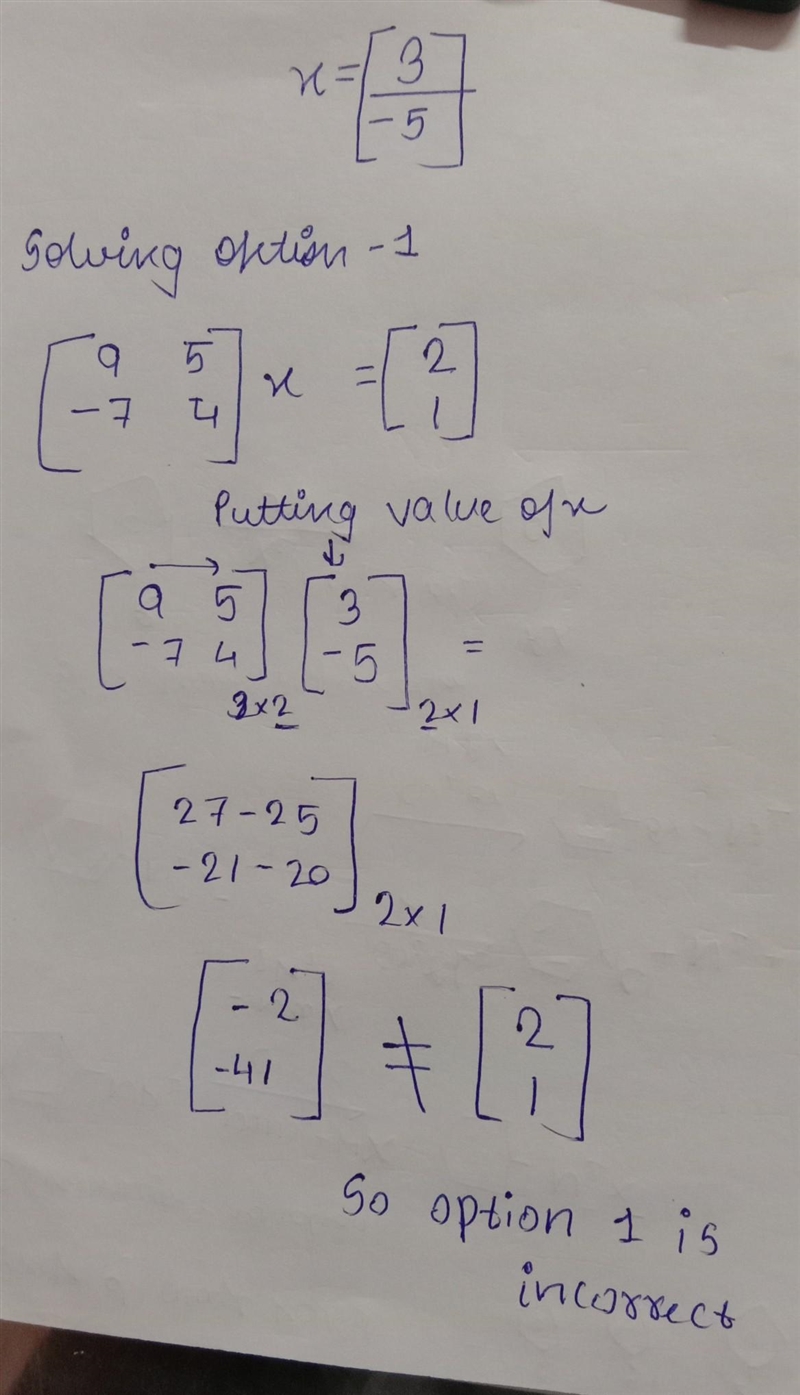 x = [ 3
-5 ]
Solving option - 1
[ 9 5
-7 4 ] x = [ 2
1 ]
Putting value of x
↓
[ 9 5
-7 4 ] [ 3
-5 ] =
2×2 2×1
[ 27-25
-21-20 ] 2×1
[ -2
-41 ] ≠ [ 2
1 ]
So option 1 is
incorrect